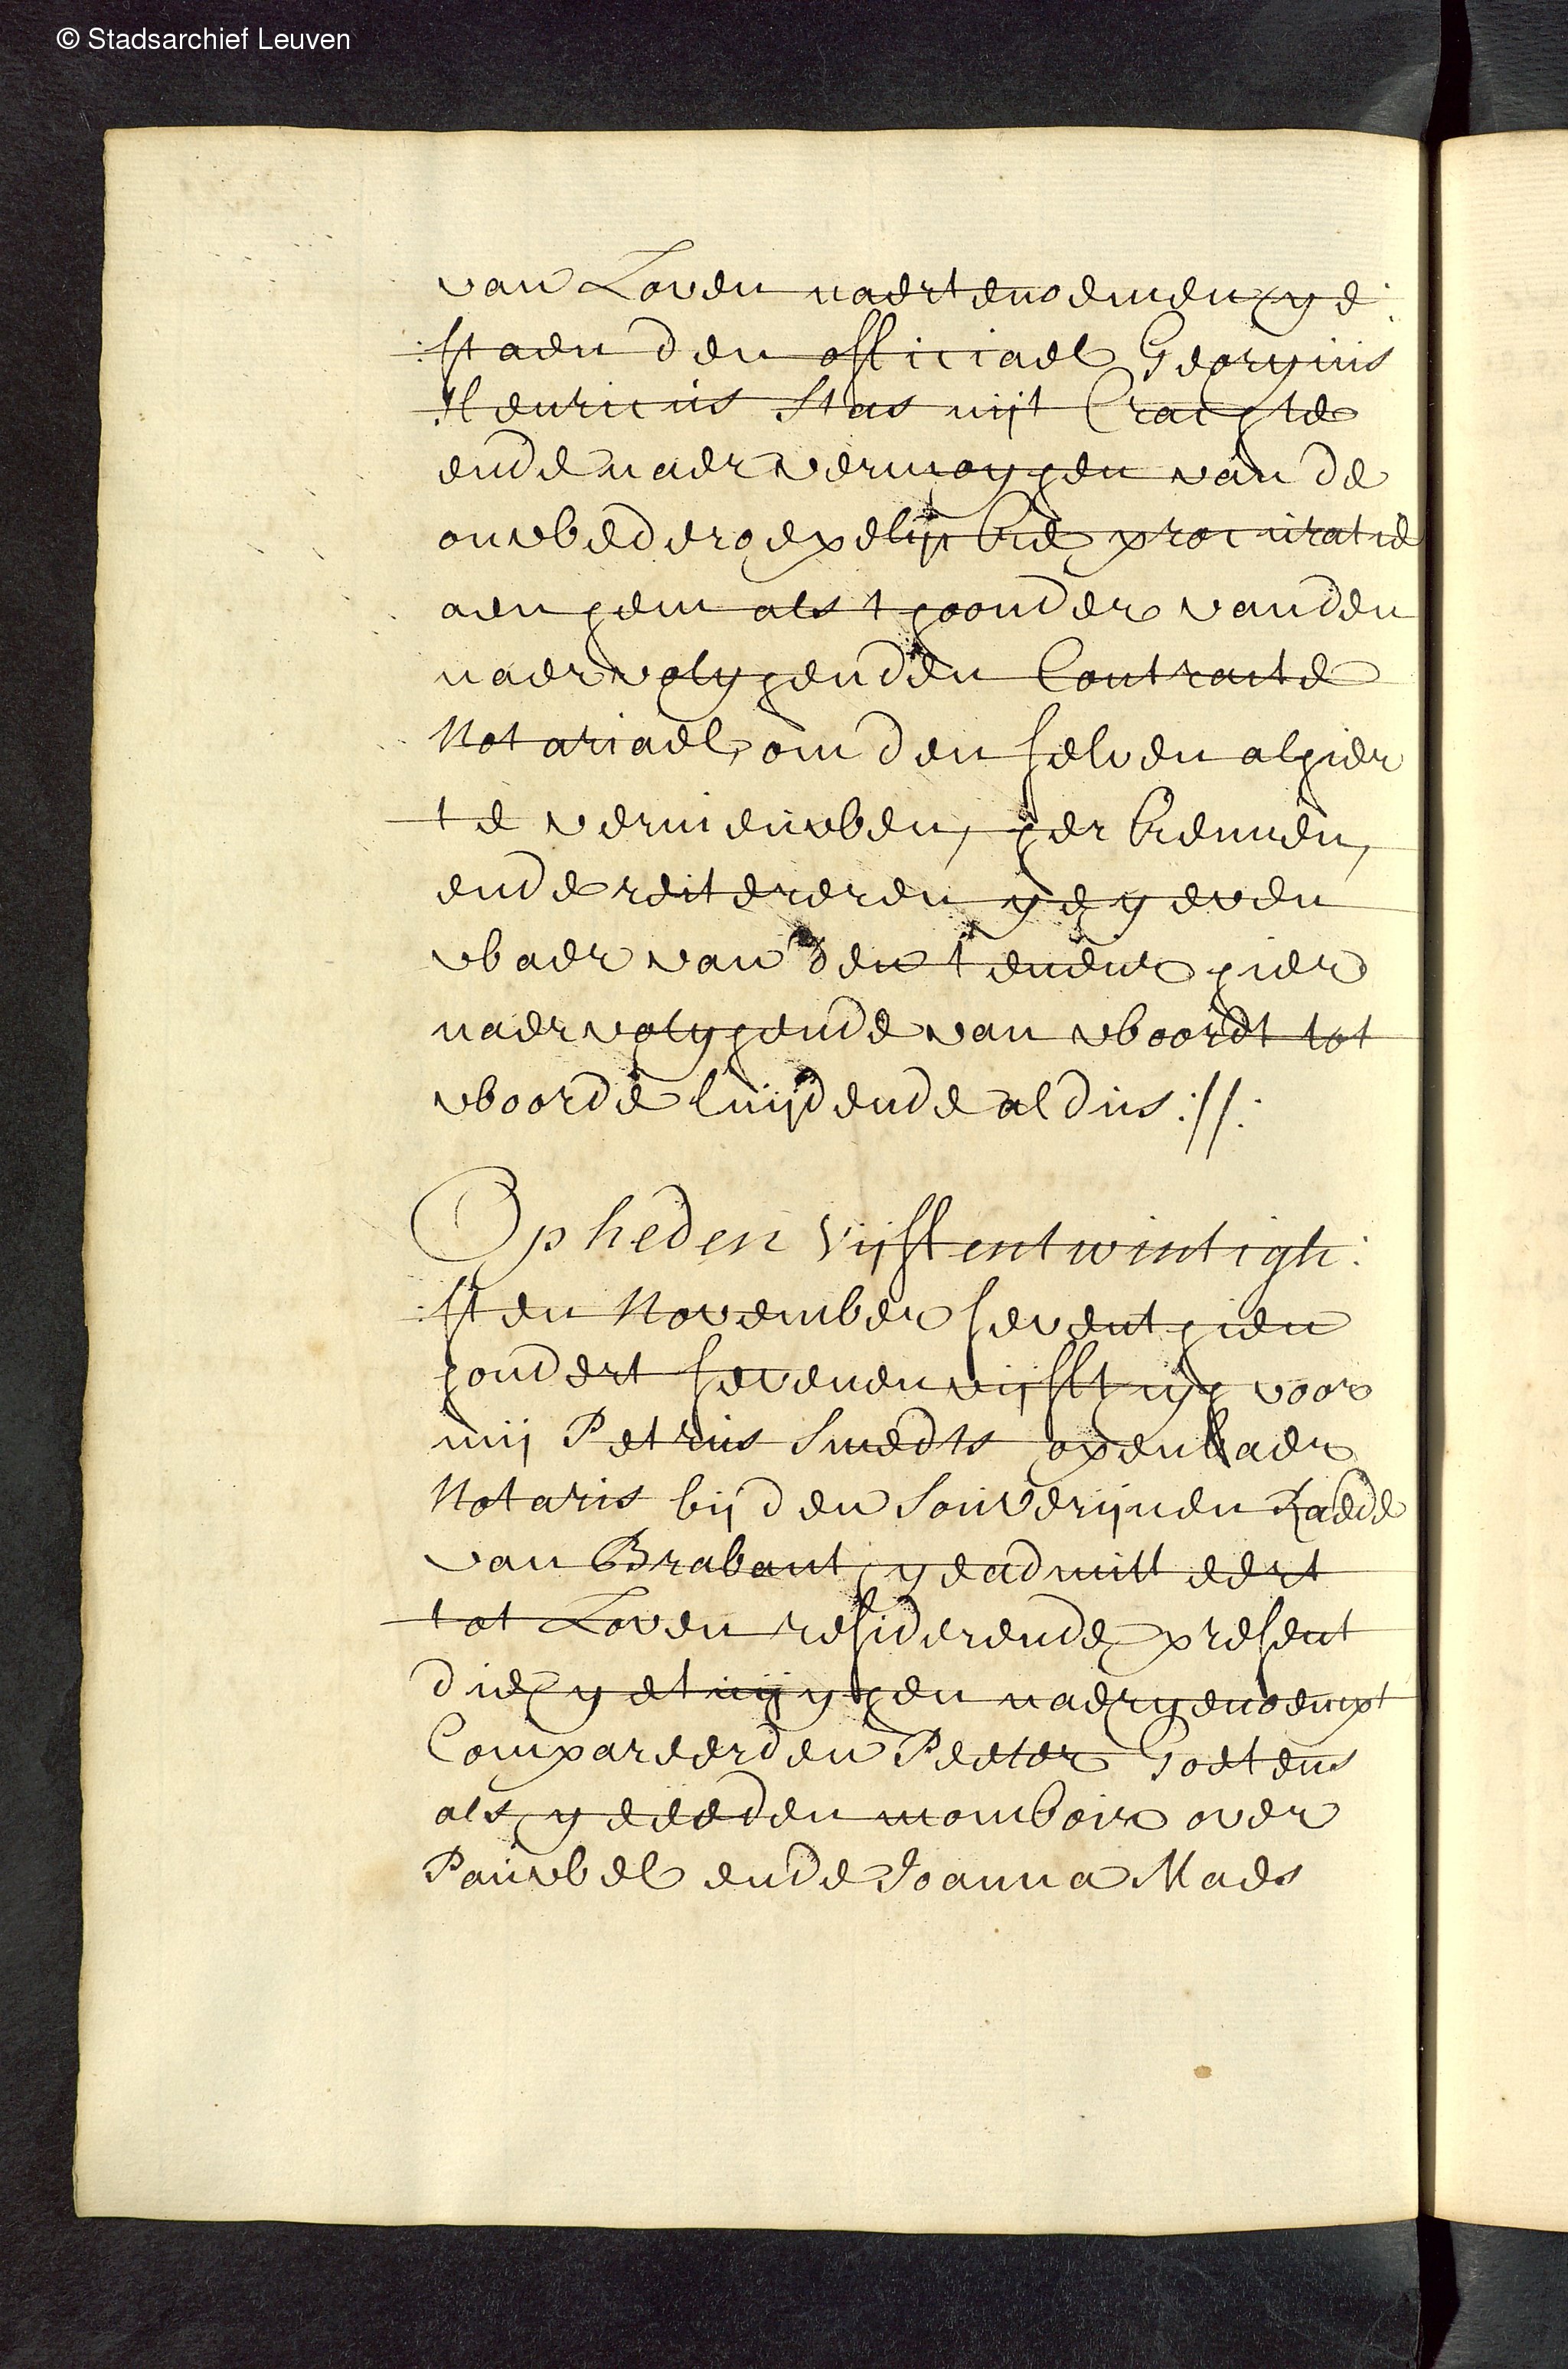 © Stadsarchief Leuven
van Loven naertenoemen ge:
:staen den officiael Georgius
Henricus Stas uijt Crachte
ende naer vermoghen van de
onwederoepelijcke procuratie
aen hem als thoonder van den
naervolghenden Contracte
Notariael, om den selven alhier
te vernieuwen, herkennen,
ende reitereren gegeven
waer van den teneur hier
naervolghende van woordt tot
woorde luijdende aldus ://:
Op heden vijffentwintigh:
:sten November seventhien
hondert sevenenvijfftigh voor
mij Petrus Smedts openbaer
Notaris bij den Souverijnen Raede
van Brabant, geadmitteert
tot Loven residerende present
die getuijghen naergenoempt
Compareerden Peeter Goetens
als geeeden momboir over
Pauwel ende Joanna Maes